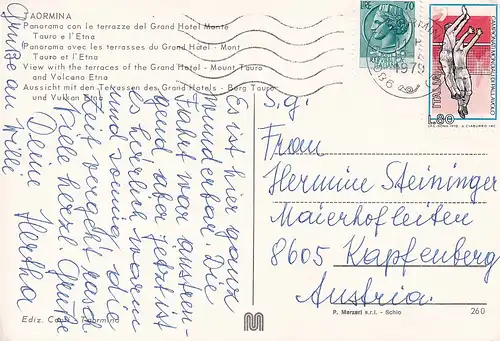 TAORMINA
Panorama con le terrazze del Grand Hotel Monte
Tauro e l'Etna
Panorama avec les terrasses du Grand Hôtel - Mont
Tauro et l'Etna
View with the terraces of the Grand Hotel - Mount Tauro
and Volcano Etna
Aussicht mit den Terrassen des Grand Hotels - Berg Tauro
und Vulkan Etna
Es ist hier ganz
wunderbar. Die
Fahrt war anstren-
gend aber jetzt ist
es herrlich warm
und sonnig, die
Zeit vergeht rasch.
Viele herzl. Grüße
Deine Hertha
Gruß an Willi
Sig.
Frau
Hermine Steininger
Maierhofleiten
8605 Kapfenberg
Austria.
70
1979
ITALIA
L.80
Taormina
P. Marzari s.r.l. - Schio
260